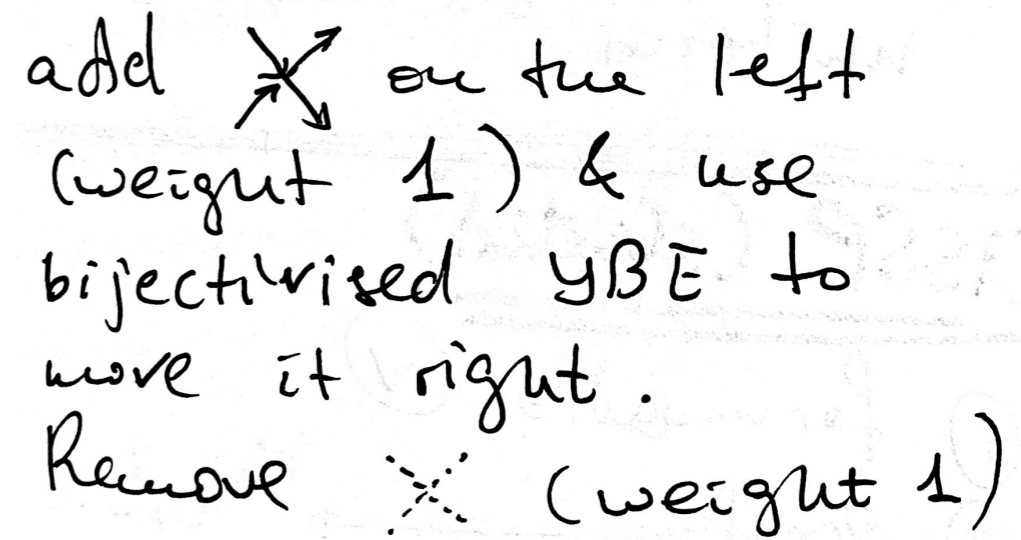 add on the left
(weight 1) & use
bijectivised YBE to
move it right.
Remove (weight 1)